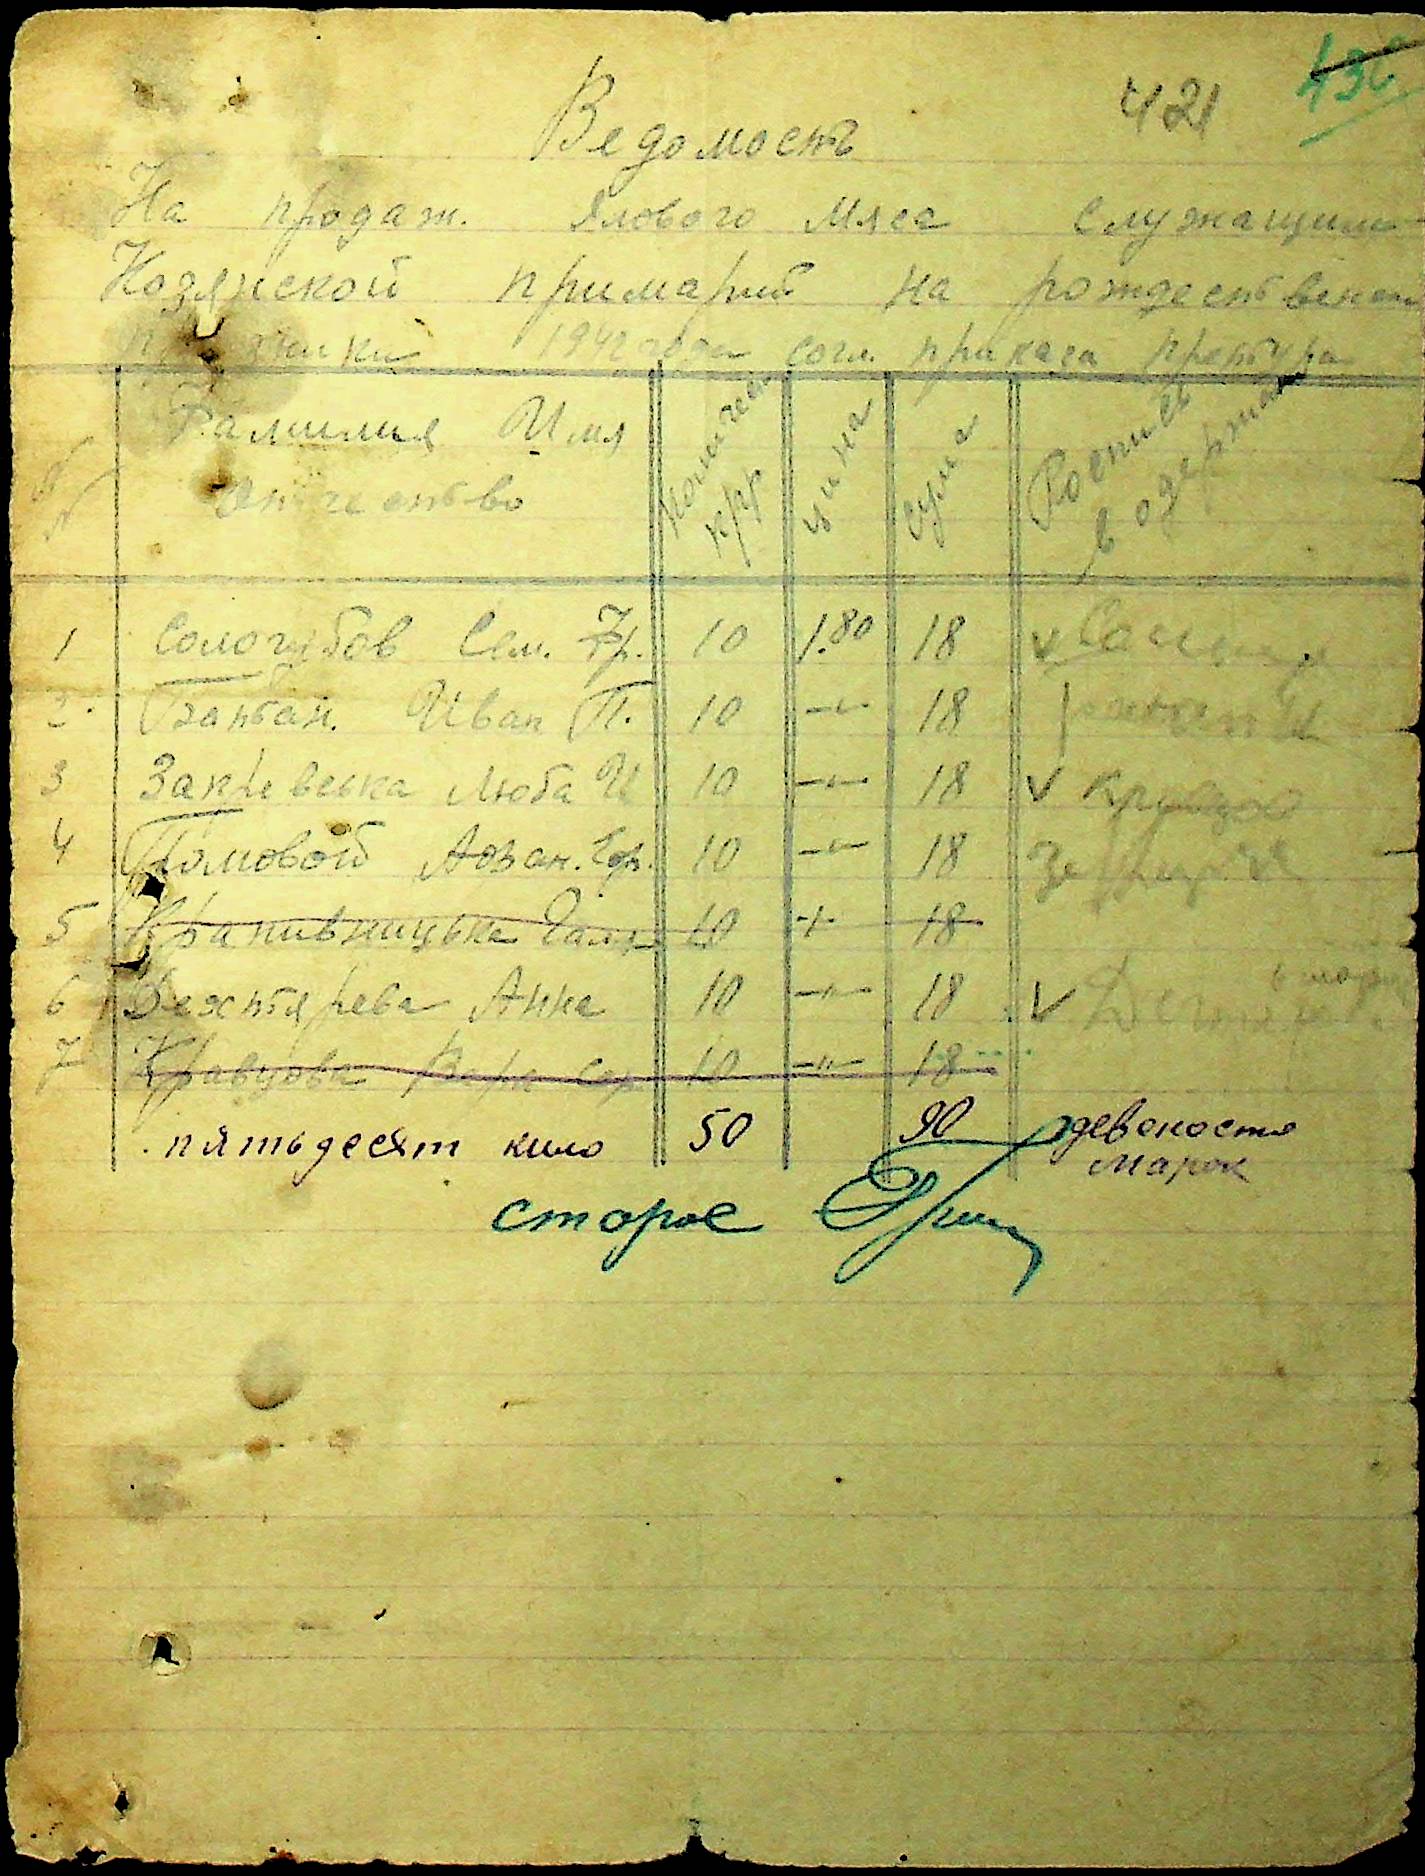 421 436
Ведомость
На продаж. Ялового Мяса Служащим
Козянской примарии на рождественск
1942 года согл. приказа претура
№ Фамилия Имя Отчество Количес кгр цина сума Роспись в одержан
1 Сологубов Сем. Гр. 10 1.80 18 v
2. Банбан. Иван П. 10 —"— 18
3 Закревська Люба И 10 —"— 18 v
4 Помовой Афан. Гер. 10 —"— 18
5 Крапивницька Галя 10 —"— 18
6 Дехтярева Анна 10 —"— 18 v
7 Кравцова Вера Сер. 10 —"— 18
пятьдесят кило 50 90 девеносто
марок
старос